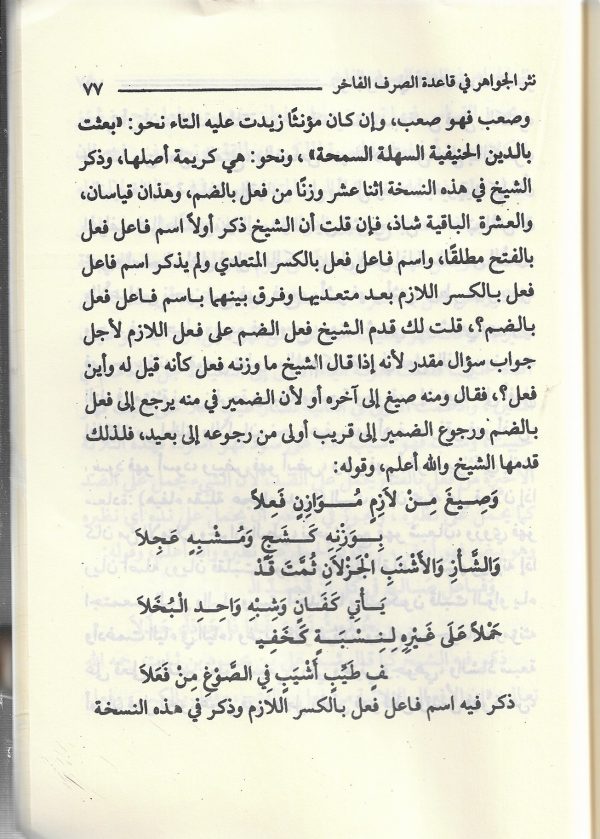 نثر الجواهر في قاعدة الصرف الفاخر ٧٧
وصعب فهو صعب، وإن كان مؤنثًا زيدت عليه التاء نحو: «بعثت
بالدين الحنيفية السهلة السمحة» ، ونحو: هي كريمة أصلها، وذكر
الشيخ في هذه النسخة اثنا عشر وزنًا من فعل بالضم، وهذان قياسان،
والعشرة الباقية شاذ، فإن قلت أن الشيخ ذكر أولاً اسم فاعل فعل
بالفتح مطلقًا، واسم فاعل فعل بالكسر المتعدي ولم يذكر اسم فاعل
فعل بالكسر اللازم بعد متعديها وفرق بينهما باسم فاعل فعل
بالضم؟، قلت لك قدم الشيخ فعل الضم على فعل اللازم لأجل
جواب سؤال مقدر لأنه إذا قال الشيخ ما وزنه فعل كأنه قيل له وأين
فعل؟، فقال ومنه صيغ إلى آخره أو لأن الضمير في منه يرجع إلى فعل
بالضم ورجوع الضمير إلى قريب أولى من رجوعه إلى بعيد، فلذلك
قدمها الشيخ والله أعلم، وقوله:
وَصِيغَ مِنْ لاَزِمٍ مُوَازِنٍ فَعِلاَ
بِوَزْنِهِ كَشَجٍ وَمُشْبِهٍ عَجِلاَ
وَالشَّأْزِ وَالأَشْنَبِ الجَزْلاَنِ ثُمَّتَ قَدْ
يَأْتِي كَفَانٍ وَشِبْهِ وَاحِدِ الْبُخَلاَ
حَمْلاً عَلَى غَيْرِهِ لِنِسْبَةٍ كَخَفِيـ
ـفٍ طَيِّبٍ أَشْيَبٍ فِي الصَّوْغِ مِنْ فَعَلاَ
ذكر فيه اسم فاعل فعل بالكسر اللازم وذكر في هذه النسخة